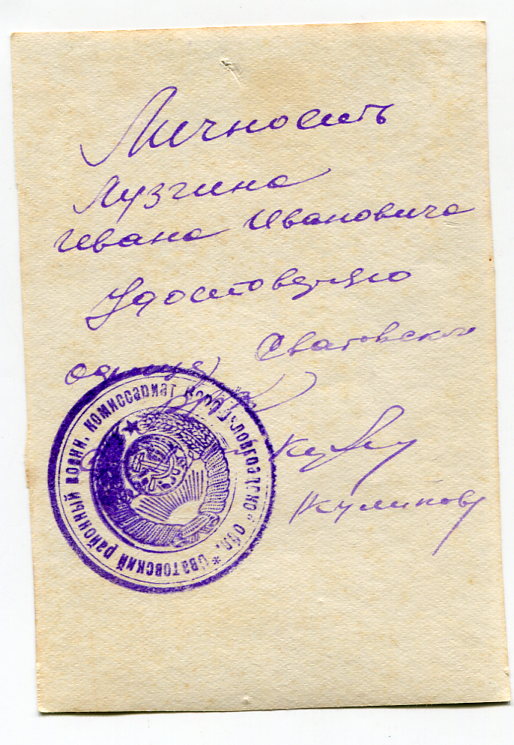 Личность
Лузгина
Ивана Ивановича
Удостоверяю
Сватовского
Куликов
* Сватовский районный воен. комиссариат Ворошиловградской обл.